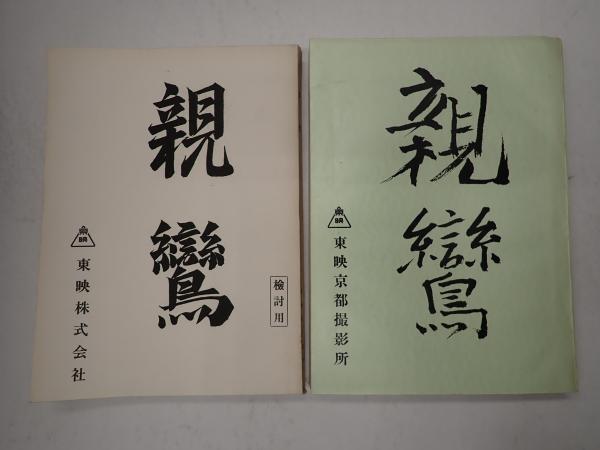 親鸞
検討用
東映
東映株式会社
親鸞
東映
東映京都撮影所